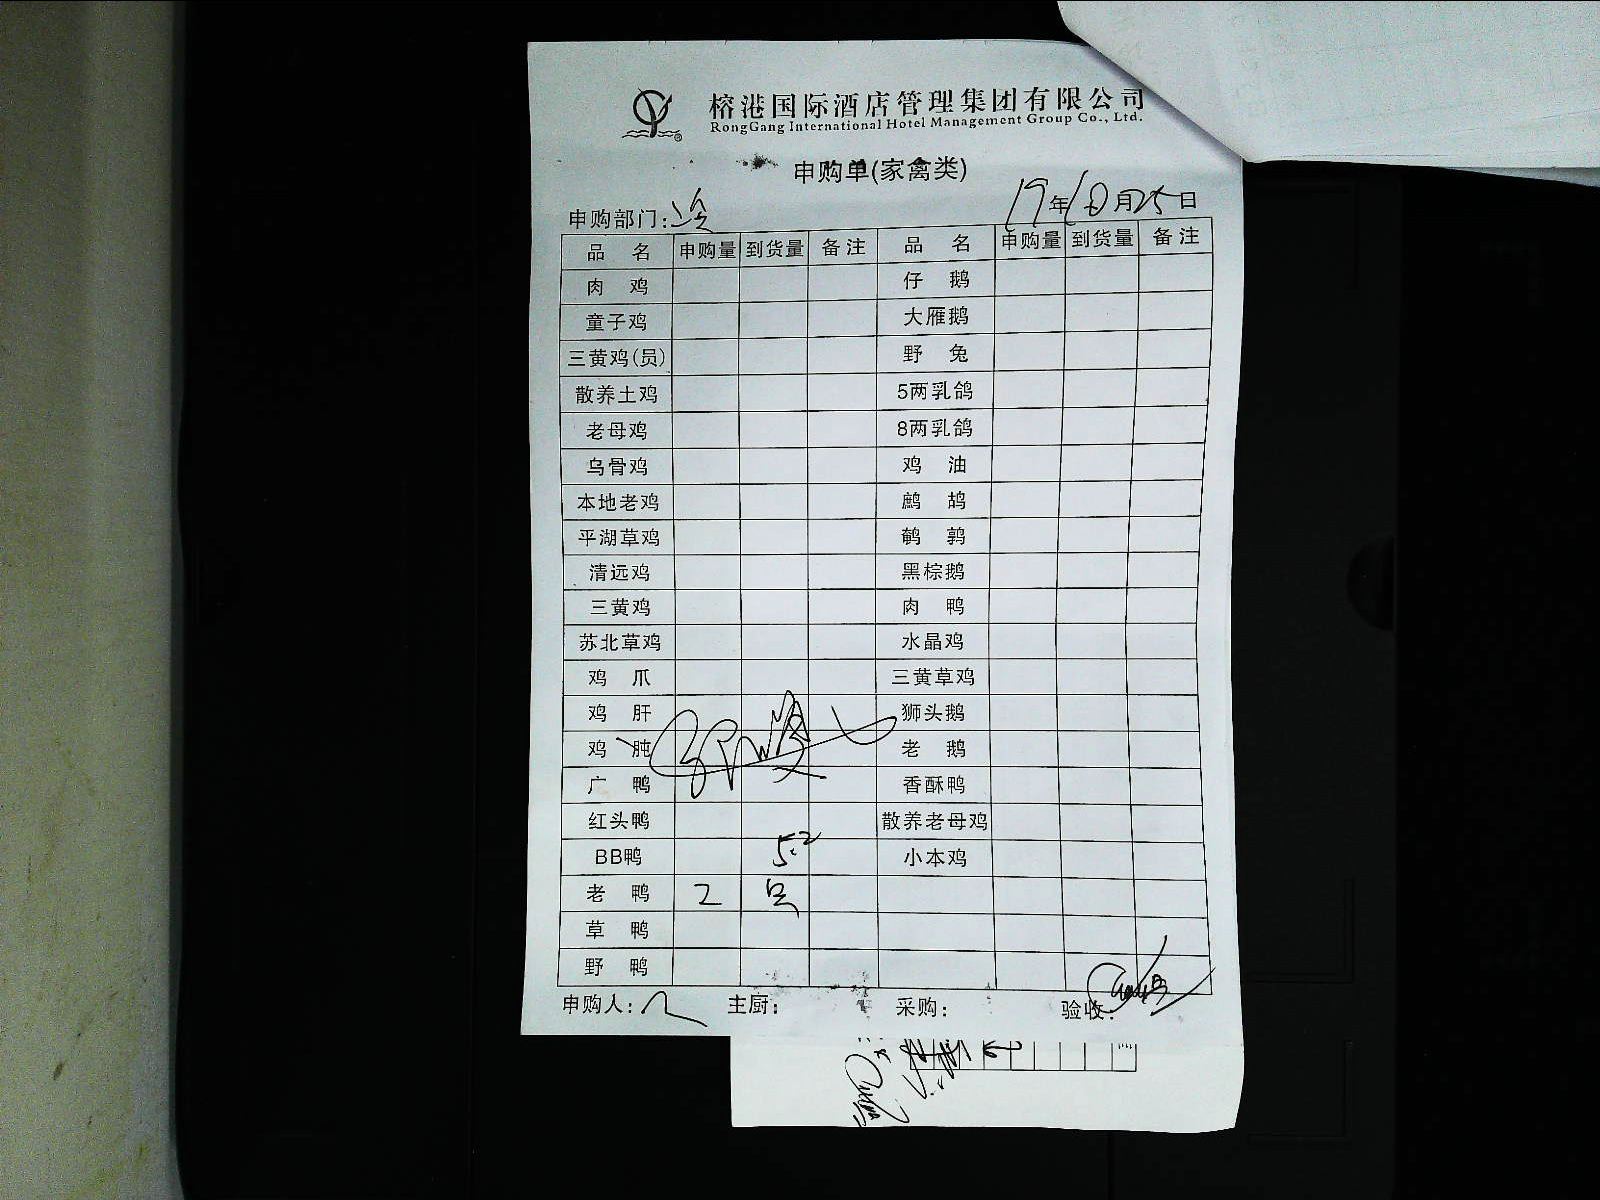 榕港国际酒店管理集团有限公司
RongGang International Hotel Management Group Co., Ltd.
申购单(家禽类)
申购部门: 19年10月25日
品名 申购量 到货量 备注 品名 申购量 到货量 备注
肉鸡 仔鹅
童子鸡 大雁鹅
三黄鸡(员) 野兔
散养土鸡 5两乳鸽
老母鸡 8两乳鸽
乌骨鸡 鸡油
本地老鸡 鹧鸪
平湖草鸡 鹌鹑
清远鸡 黑棕鹅
三黄鸡 肉鸭
苏北草鸡 水晶鸡
鸡爪 三黄草鸡
鸡肝 狮头鹅
鸡肫 老鹅
广鸭 香酥鸭
红头鸭 散养老母鸡
BB鸭 5.2 小本鸡
老鸭 2
草鸭
野鸭
申购人: 主厨: 采购: 验收: